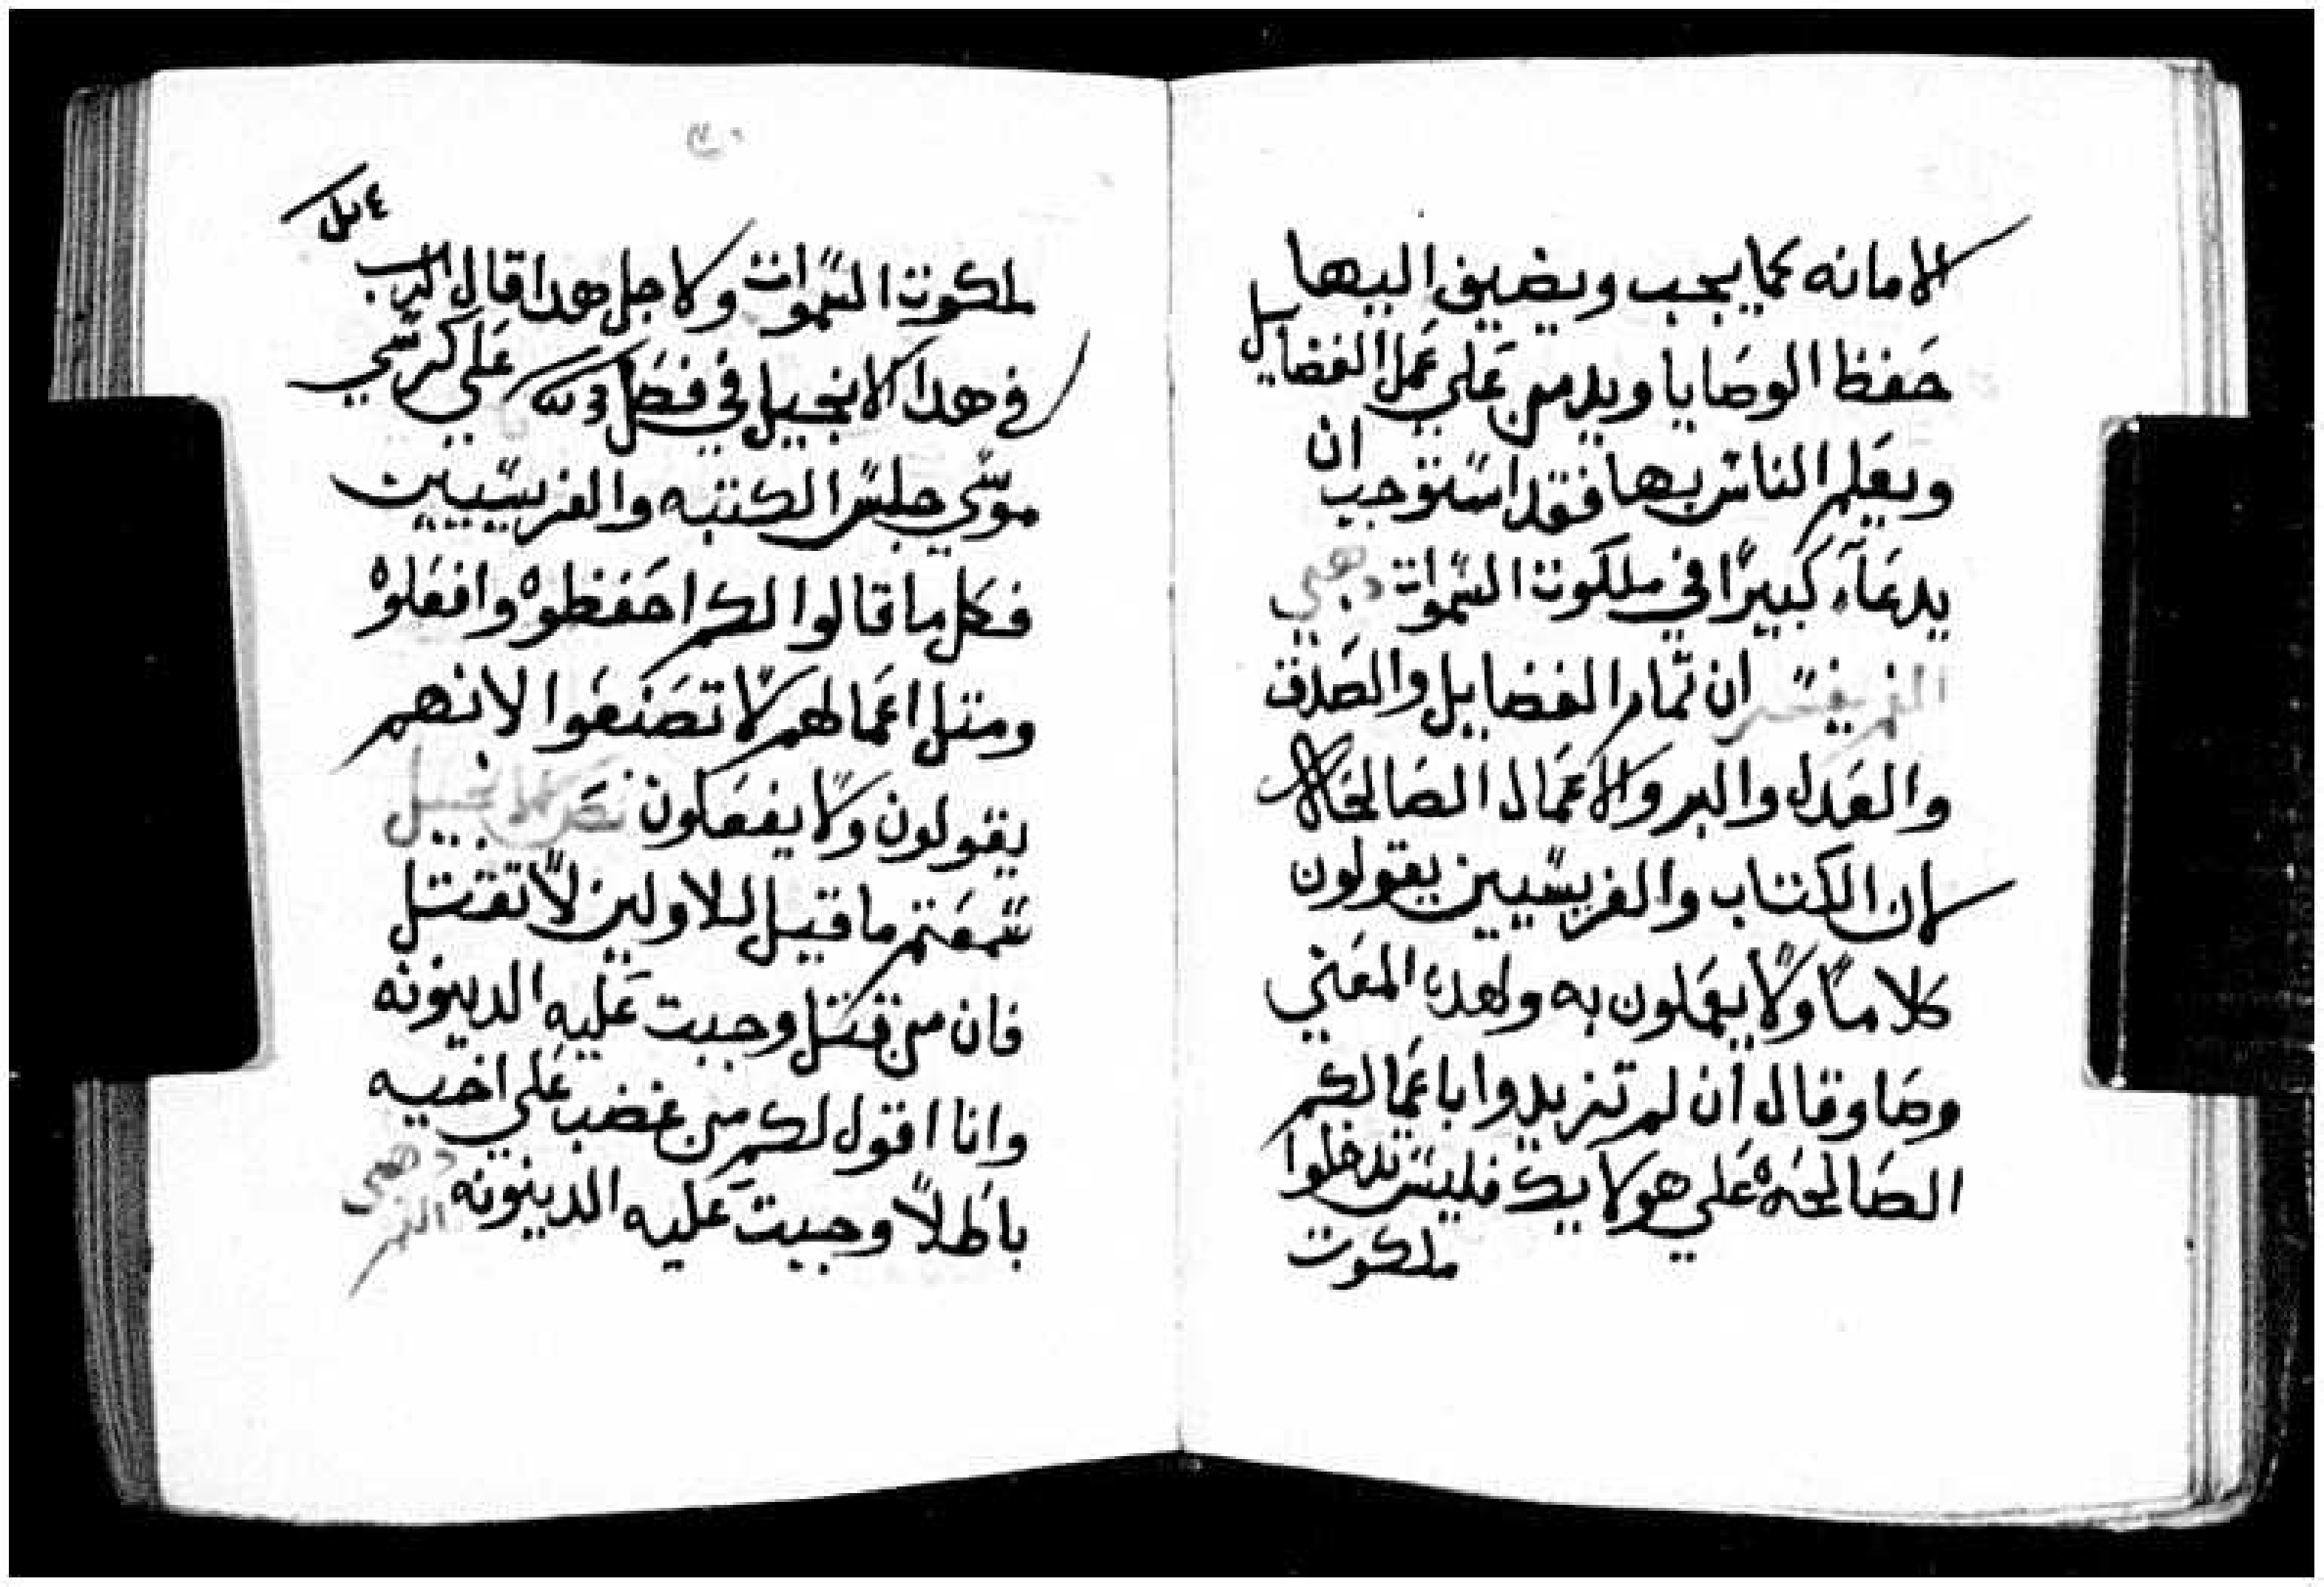 الامانه كما يجب ويضيف اليها
حفظ الوصايا ويدمن على عمل الفضايل
ويعلم الناس بها فقد استوجب ان
يدعاء كبيرًا في ملكوت السموات دهبي
الفم يفسر ان تمام الفضايل والصدق
والعدل والبر والاعمال الصالحه لا
لان الكتاب والفريسيين يقولون
كلامًا ولا يعملون به ولهدا المعني
وصا وقال ان لم تزيدوا باعمالكم
الصالحه علي هولايك فليس تدخلوا
ملكوت
ملكوت السموات ولاجل هدا قال الرب
في هدا الانجيل في فصل علي كرسي
موسي جلس الكتبه والفريسيين
فكل ما قالوا لكم احفظوه وافعلوه
ومتل اعمالهم لا تصنعوا لانهم
يقولون ولا يفعلون نص الانجيل
سمعتم ما قيل للاولين لا تقتل
فان من قتل وجبت عليه الدينونه
وانا اقول لكم من غضب علي اخيه
باطلاً وجبت عليه الدينونه دهبي
الفم